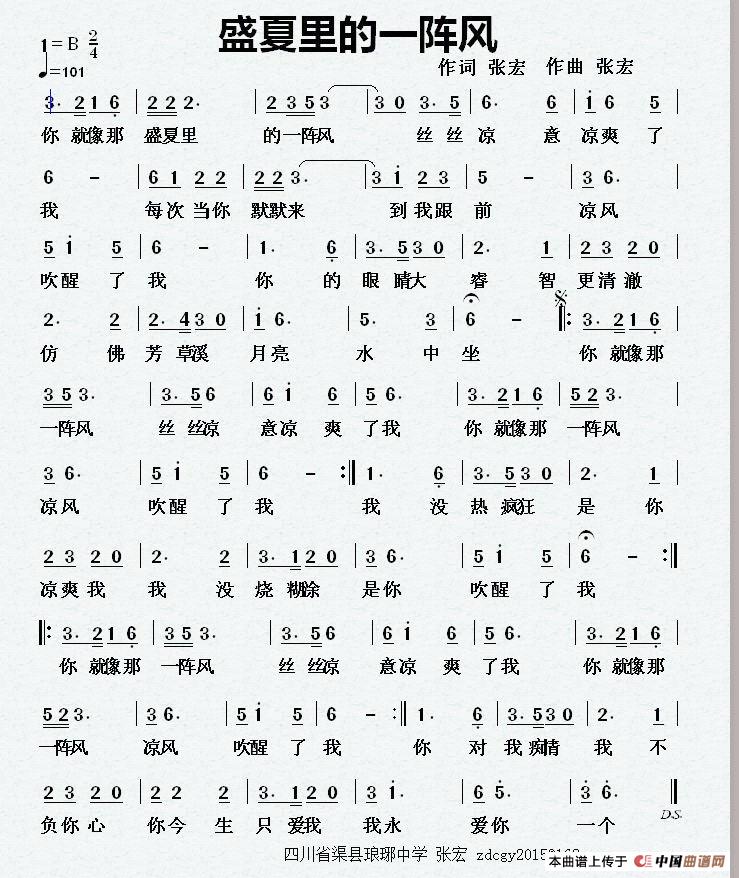 盛夏里的一阵风
1=B 2/4
♩=101
作词 张宏 作曲 张宏
3. 2 1 6 | 2 2 2. | 2 3 5 3 | 3 0 3. 5 | 6. 6 | 1 6 5 |
你 就像那 盛夏里 的一阵风 丝丝凉 意 凉爽了
6 - | 6 1 2 2 | 2 2 3. | 3 1 2 3 | 5 - | 3 6. |
我 每次当你 默默来 到我跟 前 凉风
5 1 5 | 6 - | 1. 6 | 3. 5 3 0 | 2. 1 | 2 3 2 0 |
吹醒 了 我 你 的 眼 睛大 睿 智 更清澈
2. 2 | 2. 4 3 0 | 1 6. | 5. 3 | 6 - |: 3. 2 1 6 |
仿 佛 芳 草溪 月亮 水 中 坐 你 就像那
3 5 3. | 3. 5 6 | 6 1 6 | 5 6. | 3. 2 1 6 | 5 2 3. |
一阵风 丝 丝凉 意凉 爽 了我 你 就像那 一阵风
3 6. | 5 1 5 | 6 - :| 1. 6 | 3. 5 3 0 | 2. 1 |
凉风 吹醒 了 我 我 没 热 疯狂 是 你
2 3 2 0 | 2. 2 | 3. 1 2 0 | 3 6. | 5 1 5 | 6 - :|
凉爽我 我 没 烧 糊涂 是你 吹醒 了 我
|: 3. 2 1 6 | 3 5 3. | 3. 5 6 | 6 1 6 | 5 6. | 3. 2 1 6 |
你 就像那 一阵风 丝 丝凉 意凉 爽 了我 你 就像那
5 2 3. | 3 6. | 5 1 5 | 6 - :| 1. 6 | 3. 5 3 0 | 2. 1 |
一阵风 凉风 吹醒 了 我 你 对 我 痴情 我 不
2 3 2 0 | 2 2 2 | 3. 1 2 0 | 3 1. | 6 5. | 3 6. :|
负你心 你今 生 只 爱我 我永 爱你 一个
D.S.
四川省渠县琅琊中学 张宏
本曲谱上传于 中国曲谱网